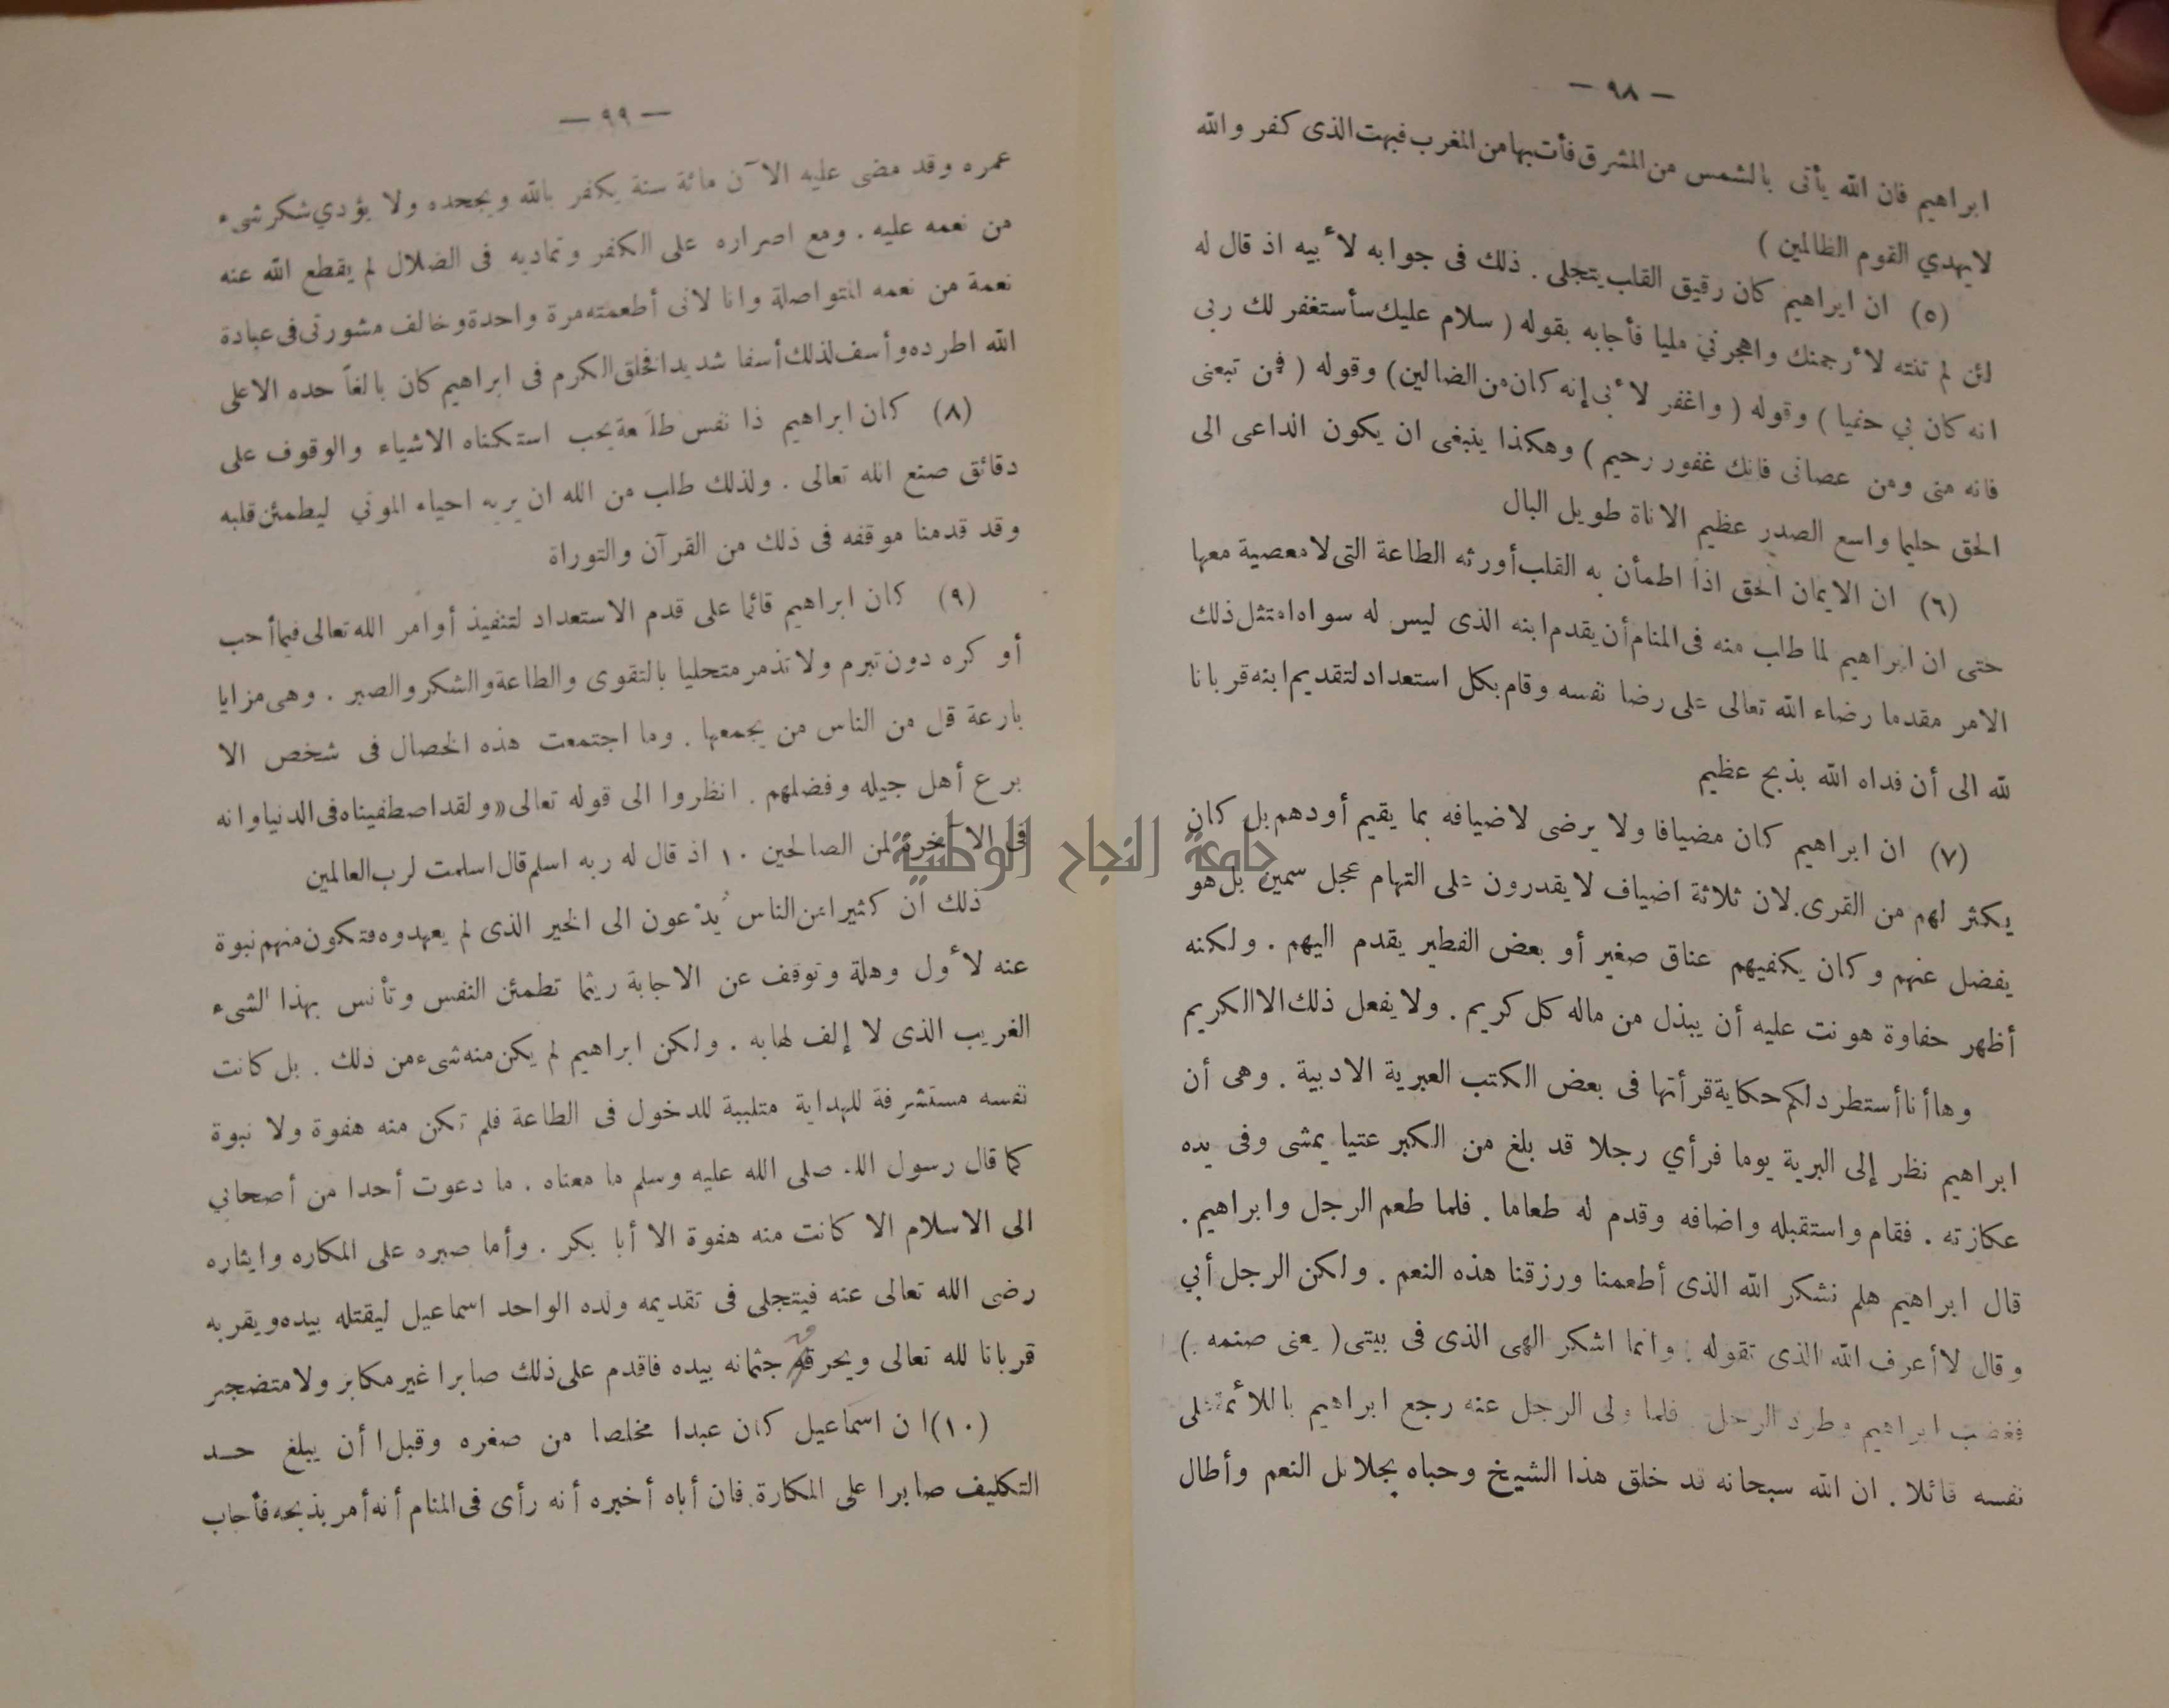 — ٩٨ —
ابراهيم فان الله يأتى بالشمس من المشرق فأت بها من المغرب فبهت الذى كفر والله
لايهدي القوم الظالمين )
(٥) ان ابراهيم كان رقيق القلب يتجلى . ذلك فى جوابه لأبيه اذ قال له
لئن لم تنته لأرجمنك واهجرني مليا فأجابه بقوله ( سلام عليك سأستغفر لك ربى
انه كان بي حفيا ) وقوله ( واغفر لأبى إنه كان من الضالين) وقوله ( فمن تبعنى
فانه منى ومن عصانى فانك غفور رحيم ) وهكذا ينبغى ان يكون الداعى الى
الحق حليما واسع الصدر عظيم الاناة طويل البال
(٦) ان الايمان الحق اذا اطمأن به القلب أورثه الطاعة التى لا معصية معها
حتى ان ابراهيم لما طلب منه فى المنام أن يقدم ابنه الذى ليس له سواه امتثل ذلك
الامر مقدما رضاء الله تعالى على رضا نفسه وقام بكل استعداد لتقديم ابنه قربانا
لله الى أن فداه الله بذبح عظيم
(٧) ان ابراهيم كان مضيافا ولا يرضى لاضيافه بما يقيم أودهم بل كان
يكثر لهم من القرى . لان ثلاثة اضياف لا يقدرون على التهام عجل سمين بل هو
يفضل عنهم وكان يكفيهم عناق صغير أو بعض الفطير يقدم اليهم . ولكنه
أظهر حفاوة هونت عليه أن يبذل من ماله كل كريم . ولا يفعل ذلك الا الكريم
وها أنا أستطرد لكم حكاية قرأتها فى بعض الكتب العبرية الادبية . وهى أن
ابراهيم نظر إلى البرية يوما فرأي رجلا قد بلغ من الكبر عتيا يمشى وفى يده
عكازته . فقام واستقبله واضافه وقدم له طعاما . فلما طعم الرجل وابراهيم .
قال ابراهيم هلم نشكر الله الذى أطعمنا ورزقنا هذه النعم . ولكن الرجل أبي
وقال لا أعرف الله الذى تقوله . وانما اشكر الهى الذى فى بيتى ( يعنى صنمه . )
فغضب ابراهيم وطرد الرجل فلما ولى الرجل عنه رجع ابراهيم باللائمة على
نفسه قائلا . ان الله سبحانه قد خلق هذا الشيخ وحباه بجلائل النعم وأطال
— ٩٩ —
عمره وقد مضى عليه الآن مائة سنة يكفر بالله ويجحده ولا يؤدي شكر شىء
من نعمه عليه . ومع اصراره على الكفر وتماديه فى الضلال لم يقطع الله عنه
نعمة من نعمه المتواصلة وانا لانى أطعمته مرة واحدة وخالف مشورتى فى عبادة
الله اطرده وأسف لذلك أسفا شديدا فخلق الكرم فى ابراهيم كان بالغاً حده الاعلى
(٨) كان ابراهيم ذا نفس طلَعة يحب استكناه الاشياء والوقوف على
دقائق صنع الله تعالى . ولذلك طلب من الله ان يريه احياء الموتي ليطمئن قلبه
وقد قدمنا موقفه فى ذلك من القرآن والتوراة
(٩) كان ابراهيم قائما على قدم الاستعداد لتنفيذ أوامر الله تعالى فيما أحب
أو كره دون تبرم ولا تذمر متحليا بالتقوى والطاعة والشكر والصبر . وهى مزايا
بارعة قل من الناس من يجمعها . وما اجتمعت هذه الخصال فى شخص الا
برع أهل جيله وفضلهم . انظروا الى قوله تعالى «ولقد اصطفيناه فى الدنيا وانه
فى الآخرة لمن الصالحين ١٠ اذ قال له ربه اسلم قال اسلمت لرب العالمين
جامعة النجاح الوطنية
ذلك أن كثيرا من الناس يُدْعون الى الخير الذى لم يعهدوه فتكون منهم نبوة
عنه لأول وهلة وتوقف عن الاجابة ريثما تطمئن النفس وتأنس بهذا الشىء
الغريب الذى لا إلف لها به . ولكن ابراهيم لم يكن منه شىء من ذلك . بل كانت
نفسه مستشرفة للهداية متلببة للدخول فى الطاعة فلم تكن منه هفوة ولا نبوة
كما قال رسول الله صلى الله عليه وسلم ما معناه . ما دعوت أحدا من أصحابي
الى الاسلام الا كانت منه هفوة الا أبا بكر . وأما صبره على المكاره وايثاره
رضى الله تعالى عنه فيتجلى فى تقديمه ولده الواحد اسماعيل ليقتله بيده ويقربه
قربانا لله تعالى ويحرقه جثمانه بيده فاقدم على ذلك صابرا غير مكابر ولا متضجر
(١٠) ان اسماعيل كان عبدا مخلصا من صغره وقبل أن يبلغ حد
التكليف صابرا على المكارة . فان أباه أخبره أنه رأى فى المنام أنه أمر بذبحه فأجاب